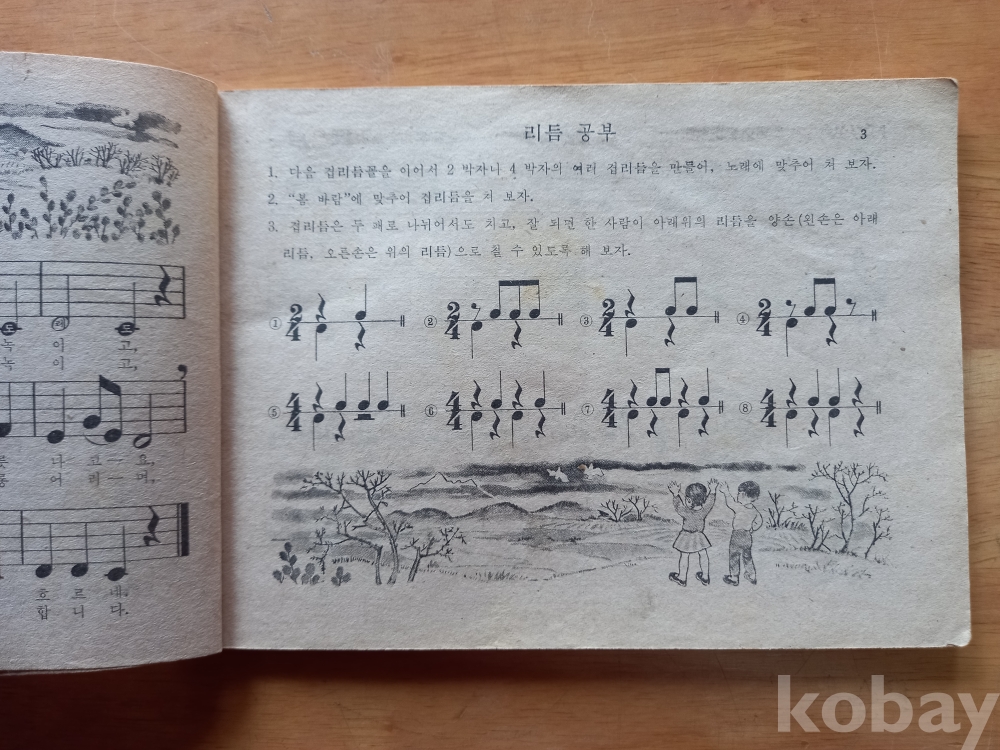 녹 이 고,
녹 이 고,
나 고 — 요,
어 리 — 며,
흐 르 네.
합 니 다.
리듬 공부
3
1. 다음 겹리듬꼴을 이어서 2 박자나 4 박자의 여러 겹리듬을 만들어, 노래에 맞추어 쳐 보자.
2. "봄 바람"에 맞추어 겹리듬을 쳐 보자.
3. 겹리듬은 두 패로 나뉘어서도 치고, 잘 되면 한 사람이 아래위의 리듬을 양손(왼손은 아래
리듬, 오른손은 위의 리듬)으로 칠 수 있도록 해 보자.
① 2/4 ② 2/4 ③ 2/4 ④ 2/4
⑤ 4/4 ⑥ 4/4 ⑦ 4/4 ⑧ 4/4
kobay